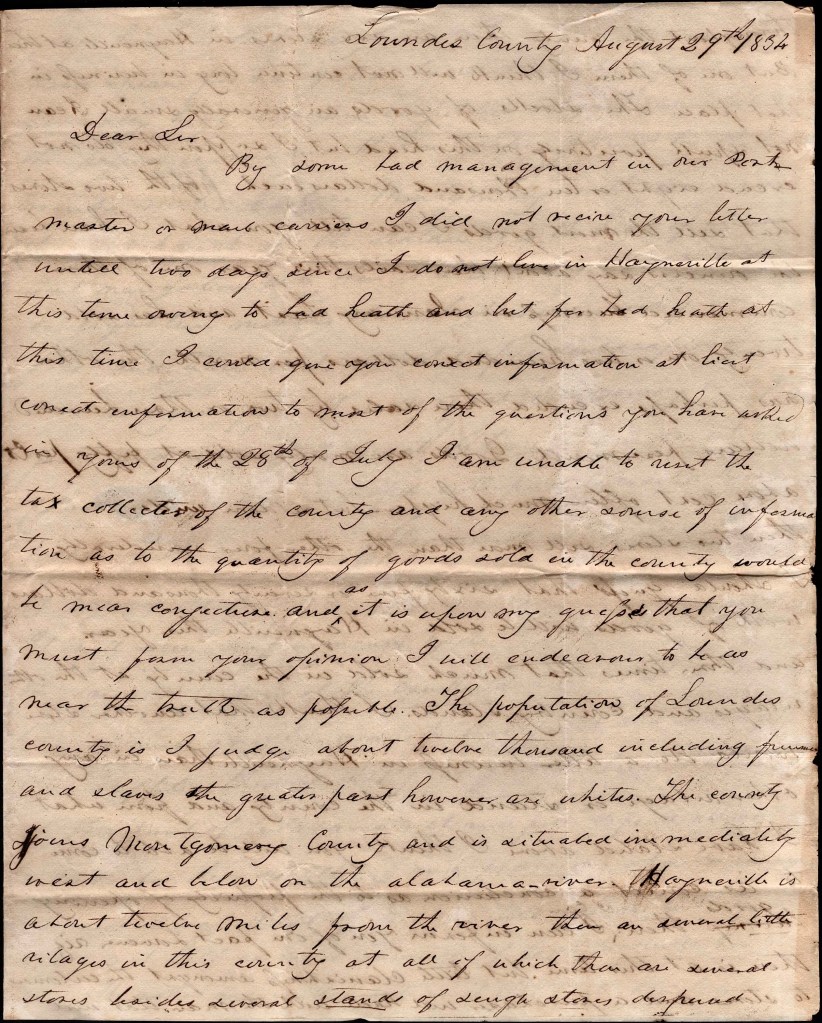 Lowndes County August 29th 1834
Dear Sir
By some bad management in our Post
master or mail carriers I did not recive your letter
untill two days since I do not live in Hayneville at
this time owing to bad heath and but for bad heath at
this time I could give you corect information at liest
corect information to most of the questions you have asked
in yours of the 28th of July I am unable to visit the
tax collector of the county and any other sourse of informa
tion as to the quantity of goods sold in the county would
be mear conjecture and as it is upon my guess that you
must form your opinion I will endeavour to be as
near the truth as possible. The population of Lowndes
county is I judge about twelve thousand including
and slaves the greater part however are whites. The county
joins Montgomery County and is situated immediately
west and below on the alabama river. Hayneville is
about twelve miles from the river then are several little
vilages in this county at all of which then are several
stores besides several stands of stores dispersed